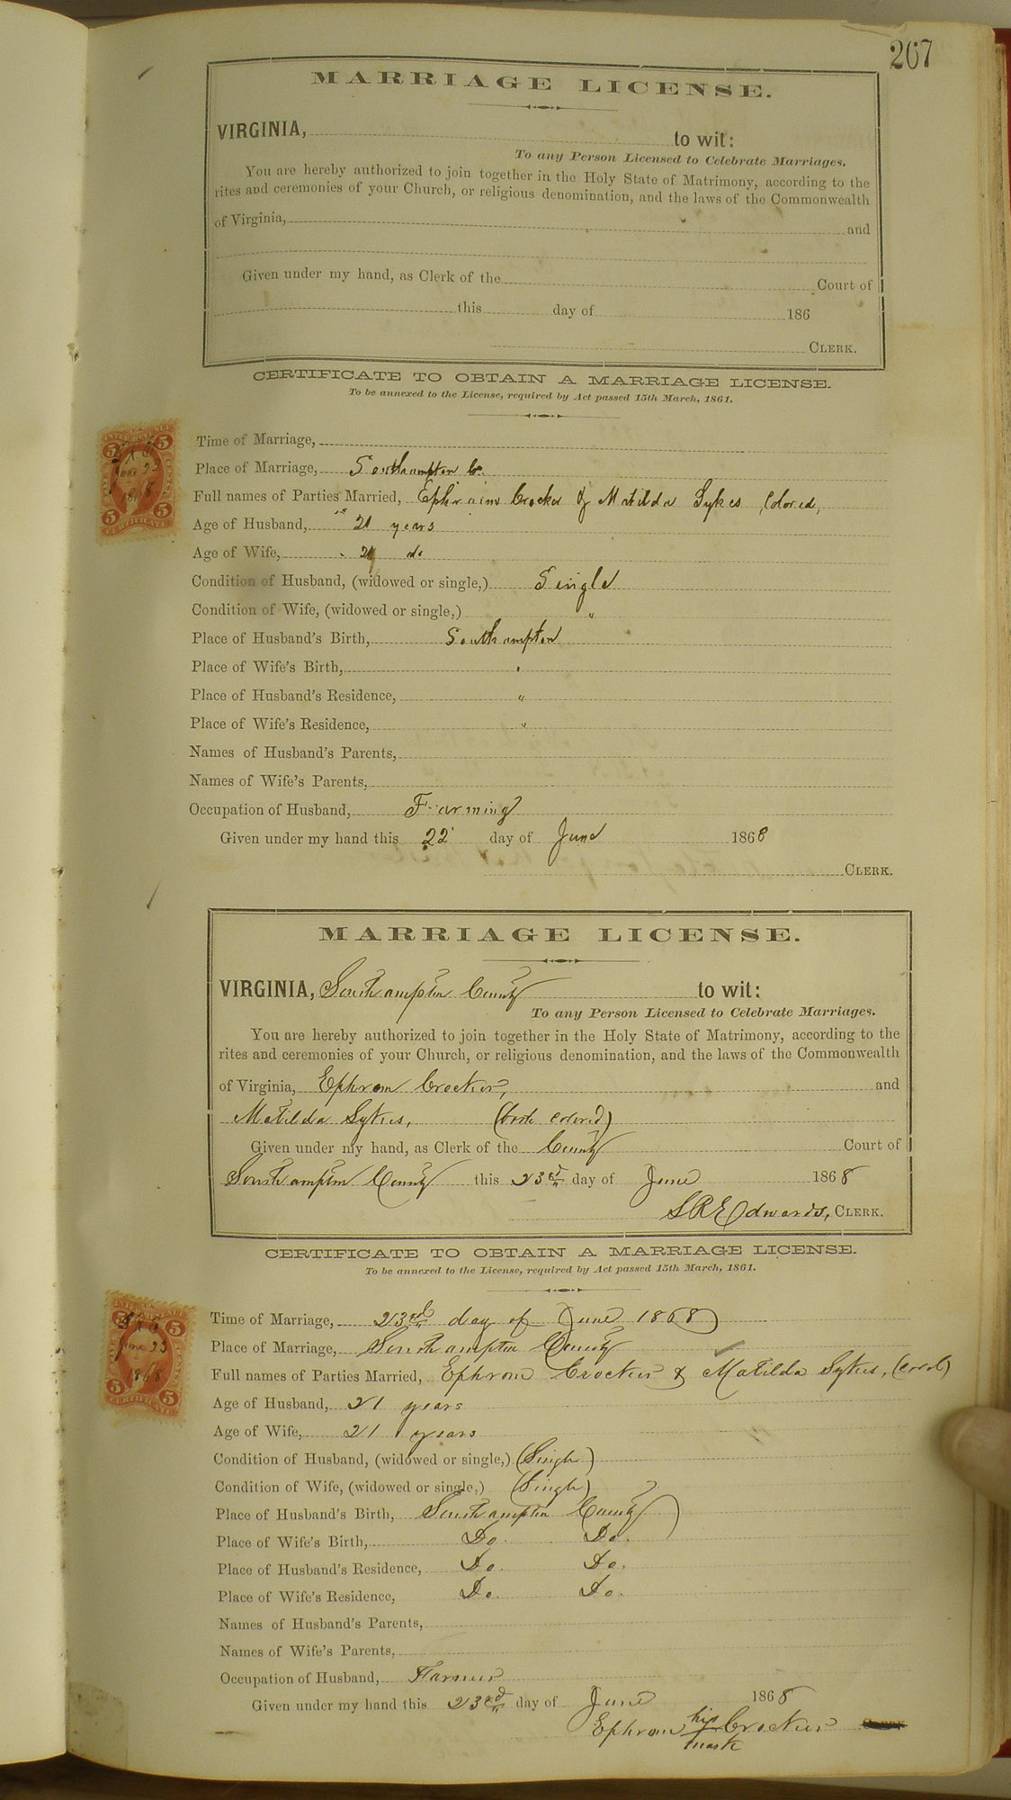 267
MARRIAGE LICENSE.
VIRGINIA, to wit:
To any Person Licensed to Celebrate Marriages.
You are hereby authorized to join together in the Holy State of Matrimony, according to the
rites and ceremonies of your Church, or religious denomination, and the laws of the Commonwealth
of Virginia, and
Given under my hand, as Clerk of the Court of
this day of 186
CLERK.
CERTIFICATE TO OBTAIN A MARRIAGE LICENSE.
To be annexed to the License, required by Act passed 15th March, 1861.
Time of Marriage,
Place of Marriage, Southampton Co.
Full names of Parties Married, Ephraim Crocker & Matilda Sykes Colored,
Age of Husband, 21 years
Age of Wife, 21 do
Condition of Husband, (widowed or single,) Single
Condition of Wife, (widowed or single,) "
Place of Husband's Birth, Southampton
Place of Wife's Birth, "
Place of Husband's Residence, "
Place of Wife's Residence, "
Names of Husband's Parents,
Names of Wife's Parents,
Occupation of Husband, Farming
Given under my hand this 22 day of June 1868
CLERK.
MARRIAGE LICENSE.
VIRGINIA, Southampton County to wit:
To any Person Licensed to Celebrate Marriages.
You are hereby authorized to join together in the Holy State of Matrimony, according to the
rites and ceremonies of your Church, or religious denomination, and the laws of the Commonwealth
of Virginia, Ephrom Crocker, and
Matilda Sykes, (both colored)
Given under my hand, as Clerk of the County Court of
Southampton County this 23rd day of June 1868
S R Edwards, CLERK.
CERTIFICATE TO OBTAIN A MARRIAGE LICENSE.
To be annexed to the License, required by Act passed 15th March, 1861.
5 5
June 23
1868
5 5
CERTIFICATE
Time of Marriage, 23rd day of June 1868
Place of Marriage, Southampton County
Full names of Parties Married, Ephrom Crocker & Matilda Sykes, (cold)
Age of Husband, 21 years
Age of Wife, 21 years
Condition of Husband, (widowed or single,) (Single)
Condition of Wife, (widowed or single,) (Single)
Place of Husband's Birth, Southampton County
Place of Wife's Birth, Do. Do.
Place of Husband's Residence, Do. Do.
Place of Wife's Residence, Do. Do.
Names of Husband's Parents,
Names of Wife's Parents,
Occupation of Husband, Farmer
Given under my hand this 23rd day of June 1868
Ephrom his Crocker
mark